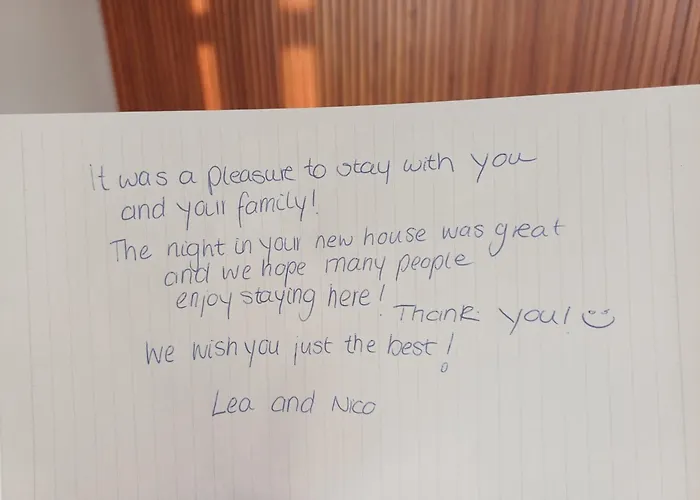 It was a pleasure to stay with you
and your family!
The night in your new house was great
and we hope many people
enjoy staying here!
Thank you! :)
We wish you just the best!
Lea and Nico